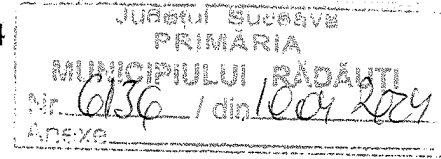 Județul Suceava
PRIMĂRIA
MUNICIPIULUI RĂDĂUȚI
Nr. 6136 / din 10 04 2024
Anexe